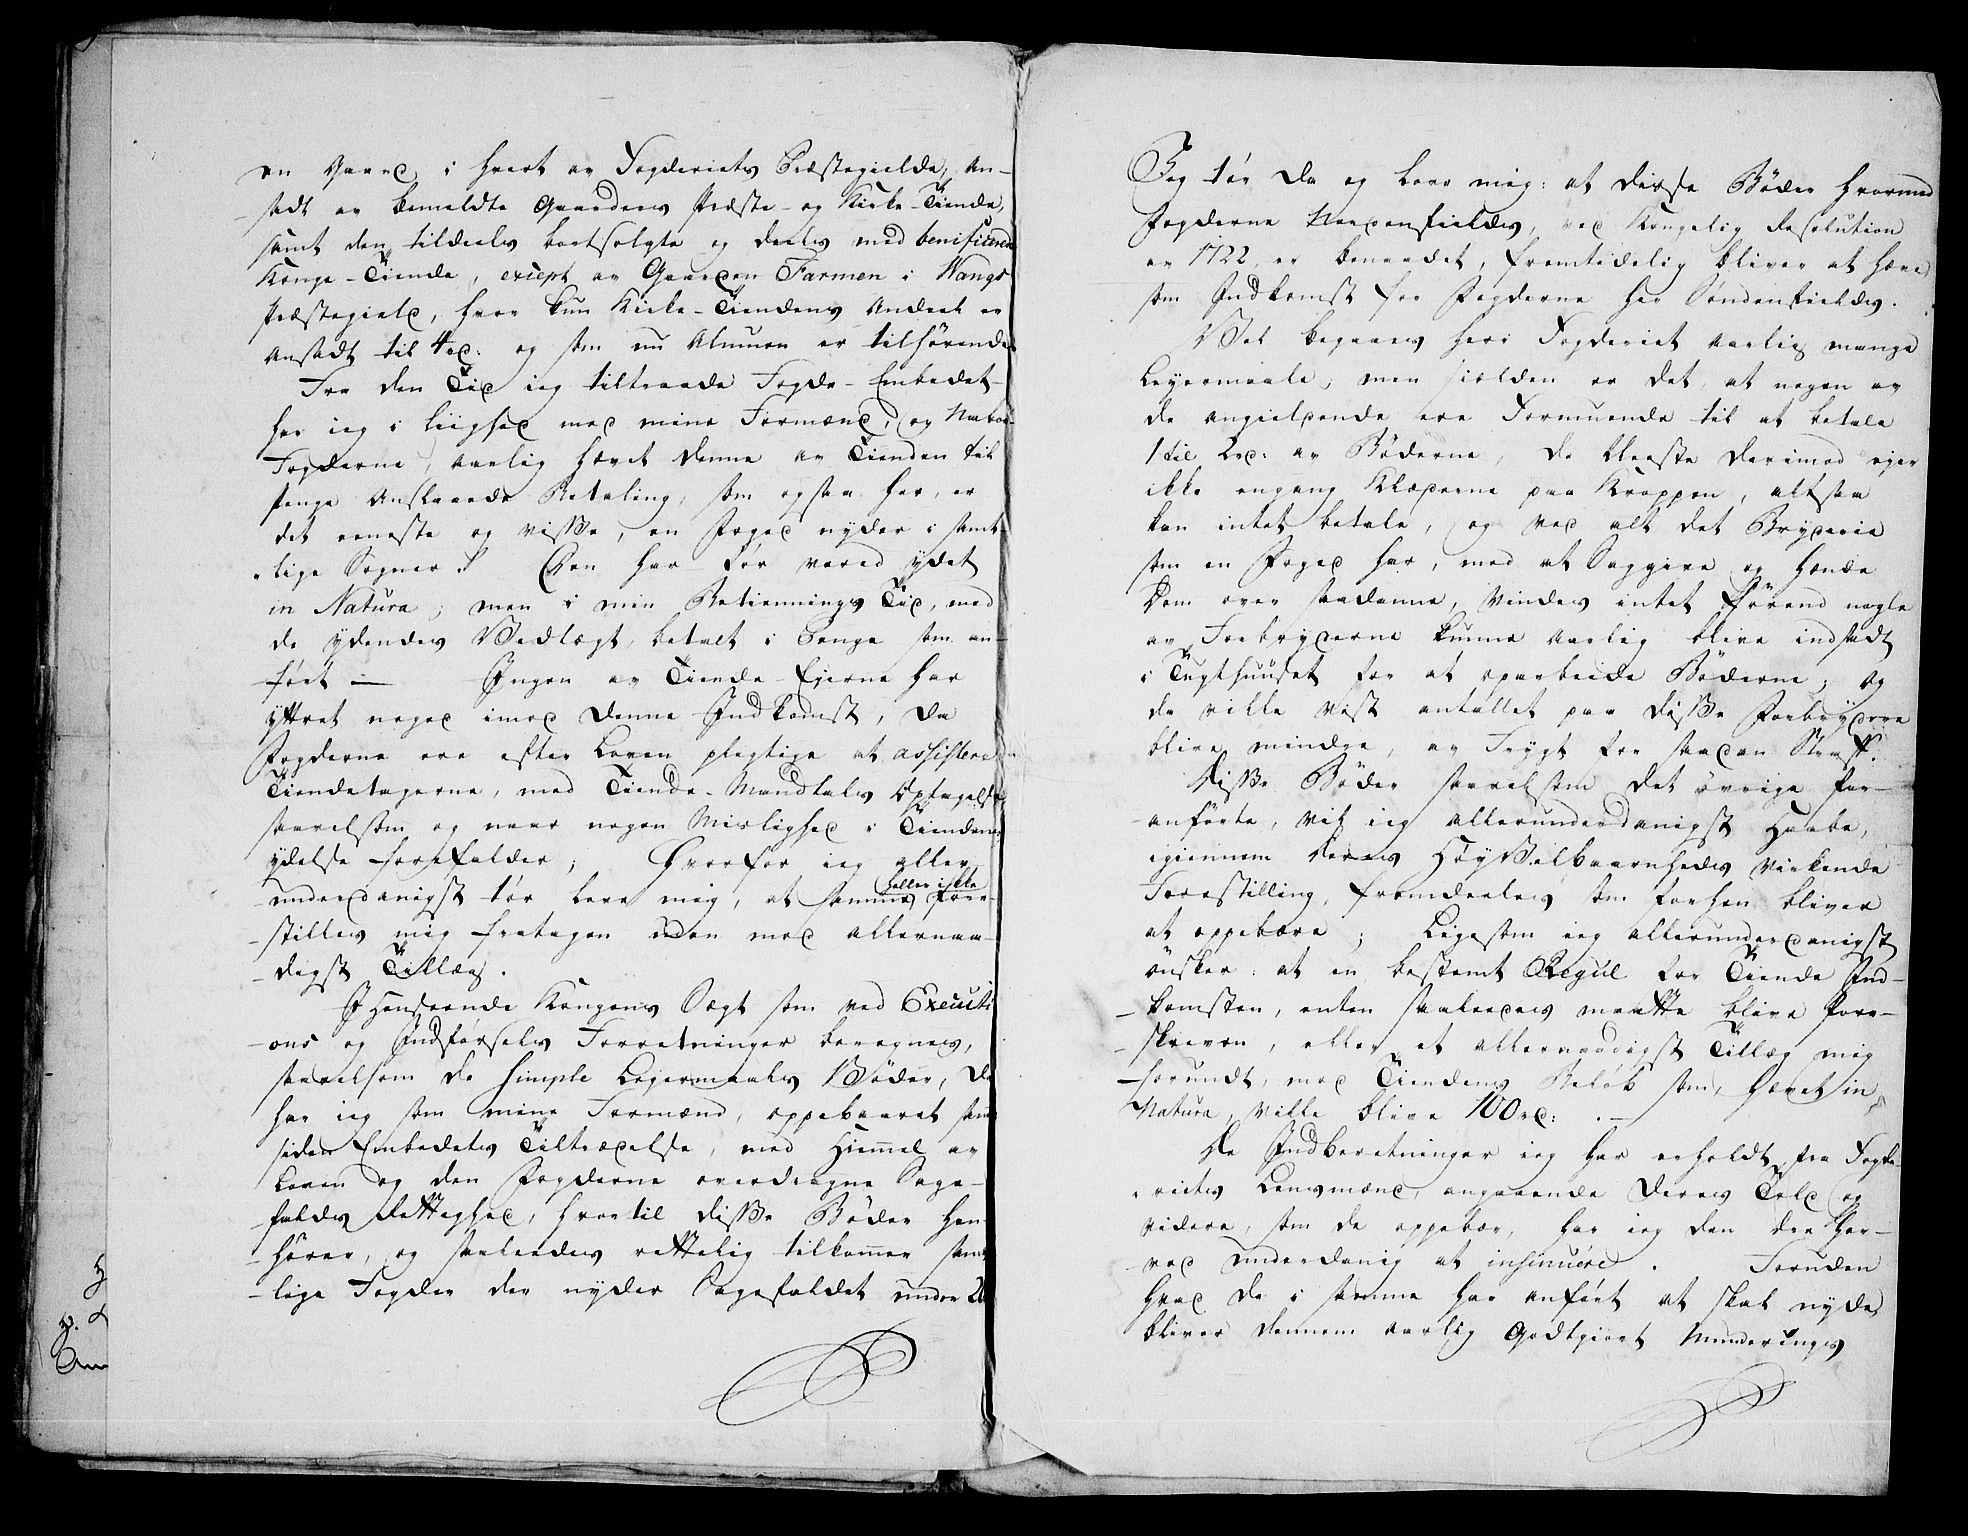 en Gaard i hvert av Fogderiets Præstegielde, an-
sadt av bemeldte Gaarders Præste- og Kirke-Tiende,
samt den tildeels bortsolgte og deels med benificerede
Konge-Tiende, exept av Gaarden Farmen i Wangs
Præstegield, hvor kun Kirke-Tiendens Andeel er
ansadt til 4 rd: og som nu Almuen er tilhørende.
Fra den Tid ieg tiltraade Fogde-Embedet
har ieg i liighed med mine Formænd, og Naboe
Fogderne, aarlig hævet denne av Tienden til
penge Anslaaede Betaling, som ogsaa her, er
det eeneste og visse, en Foged nyder i samt-
lige Sogner. Den har før været ydet
in Natura; men i min Betiennings Tid, med
de ydendes Vedtægt, betalt i Penge som an-
ført — Ingen av Tiende-Eierne har
yttret noget imod denne Indkomst, da
Fogderne ere efter Loven pligtige at assistere
Tiendetagerne, med Tiende-Mandtals Optagelse
saavelsom og naar nogen Mislighed i Tiendens
ydelse forefalder; Hvorfor ieg aller-
underdanigst tør love mig, at samme heller ikke fore-
stilles mig fratagen uden mod allernaa-
digst Tillæg.
I Henseende Kongens Sægt som ved Executi
ons og Indførsels Forretninger beregnes,
saavelsom de simple Leiermaals Bøder, da
har ieg som mine Formænd, oppebaaret samme
siden Embedets Tiltrædelse, med Hiemmel av
Loven og den Fogderne overdragne Sage-
falds Rettighed, hvortil disse Bøder hen-
hører, og saaledes rettelig tilkommer samt-
lige Fogder der nyder Sagefaldet under
Jeg tør da og love mig: at disse Bøder hvormed
Fogderne Nordenfields, ved Kongelig Resolution
av 1722 er benaadet, fremtidelig bliver at hæve
som Indkomst for Fogderne her Søndenfields.
Vel begaaes her i Fogderiet aarlig mange
Leyermaale, men sielden er det, at nogen av
de angieldende ere Formuende til at betale
1 til 2 rd: av Bøderne, De fleeste derimod eyer
ikke engang Klæderne paa Kroppen, altsaa
kan intet betale, og ved alt det Bryderie
som en Foged har, med at Saggive og hænde
Dom over saadanne, vindes intet førend nogle
av Forbryderne kunne aarlig blive indsadt
i Tugthuuset for at oparbeide Bøderne; og
da ville vist antallet paa disse Forbrydere
blive mindre, av Frygt for saadan Straff.
Disse Bøder saavelsom det øvrige for-
anførte, vil ieg allerunderdanigst haabe,
igiennem Deres Høy Velbaarenheds virkende
Forestilling, fremdeeles som forhen bliver
at oppebære; Ligesom ieg allerunderdanigst
ønsker: at en bestemt Regul for Tiende Ind-
komsten, enten saaledes maatte blive fore-
skreven, eller et allernaadigst Tillæg mig
forundt, mod Tiendens Beløb som, hævet in
Natura, ville blive 100 rd: . —
De Indberetninger ieg har erholdt fra Fogde-
riets Lensmænd, angaaende deres Told og
videre, som de oppebær, har ieg den Ære her-
ved underdanig at insinuére. Foruden
hvad de i samme har anført at skal nyde,
bliver dennem aarlig Godtgiort Munderings